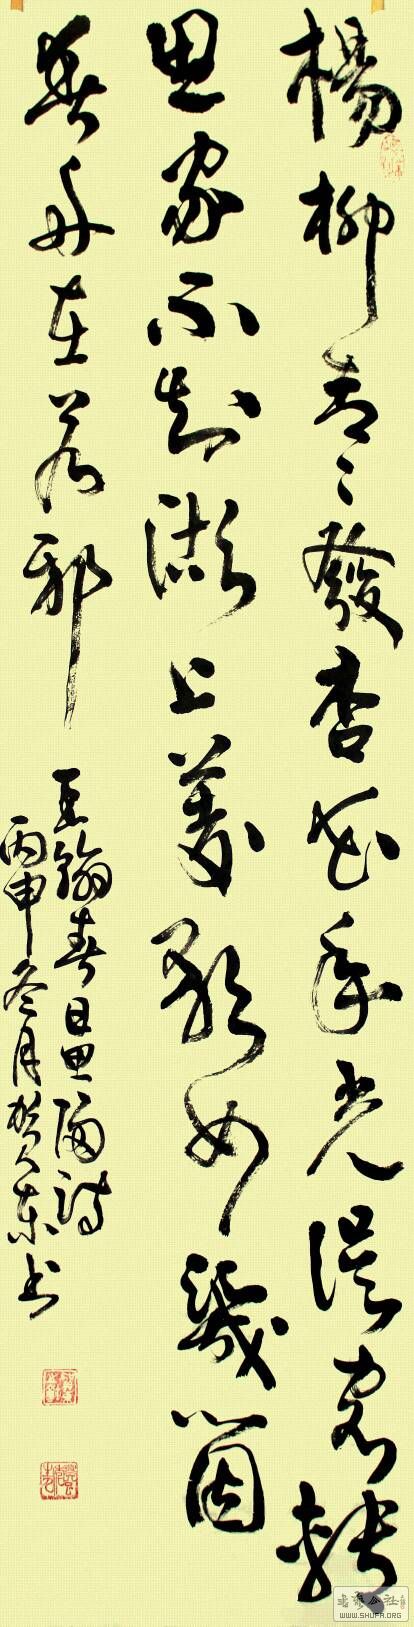 楊柳青〻發杏花年光誤客轉
思家不知湖上菱歌女幾箇
春舟在若邪
王翰春日思歸詩
丙申冬月賀東书
書法公社
WWW.SHUFA.ORG